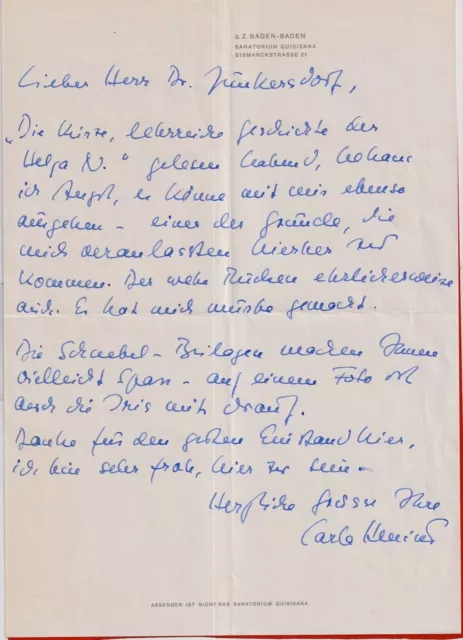 z. Z. BADEN-BADEN
SANATORIUM QUISISANA
BISMARCKSTRASSE 21
Lieber Herr Dr. Junkersdorf,
„Die kurze, lehrreiche Geschichte der
Helga N." gelesen habend, bekam
ich Angst, es könne mit mir ebenso
ausgehen - einer der Gründe, die
mich veranlassten hierher zu
kommen. Der wehe Rücken ehrlicherweise
auch. Es hat mich mürbe gemacht.
Die Schnebel-Beilagen machen Ihnen
vielleicht Spass - auf einem Foto ist
auch die Iris mit drauf.
Danke für den guten Einstand hier,
ich bin sehr froh, hier zu sein -
Herzliche Grüsse Ihre
Carla Henius
ABSENDER IST NICHT DAS SANATORIUM QUISISANA